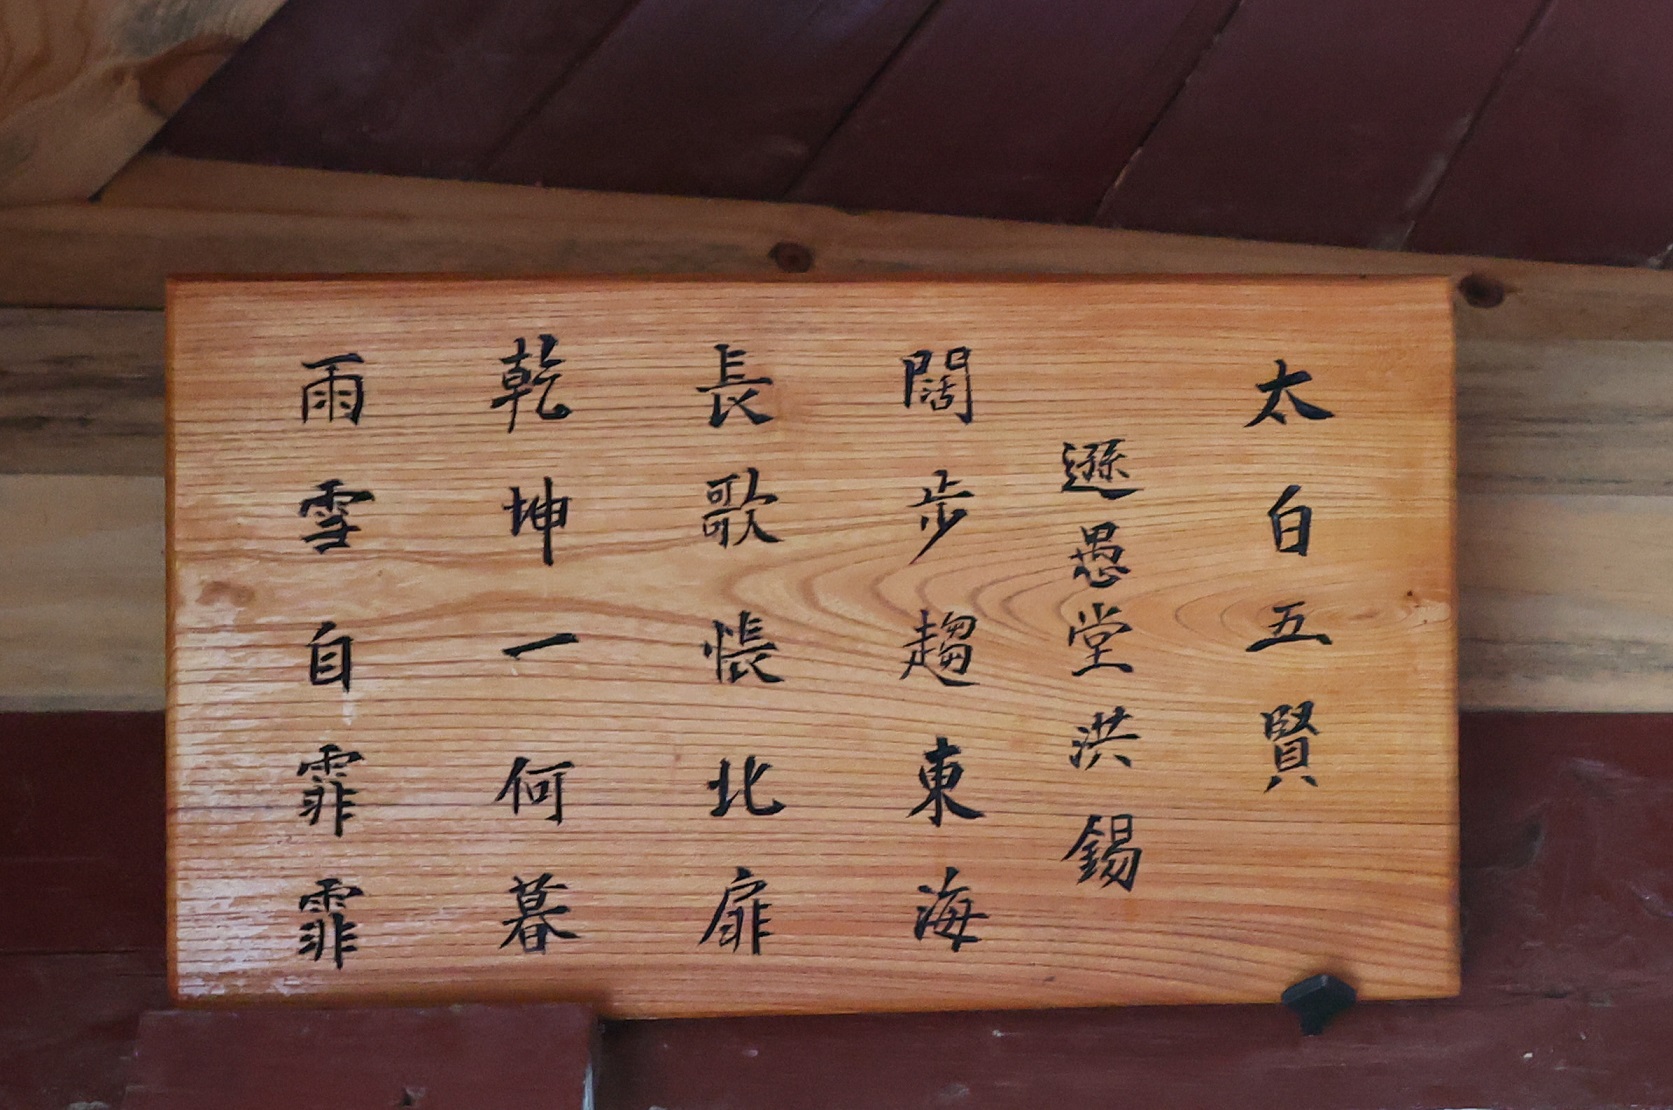 太白五賢
遜愚堂洪錫
闊步趨東海
長歌悵北扉
乾坤一何暮
雨雪自霏霏